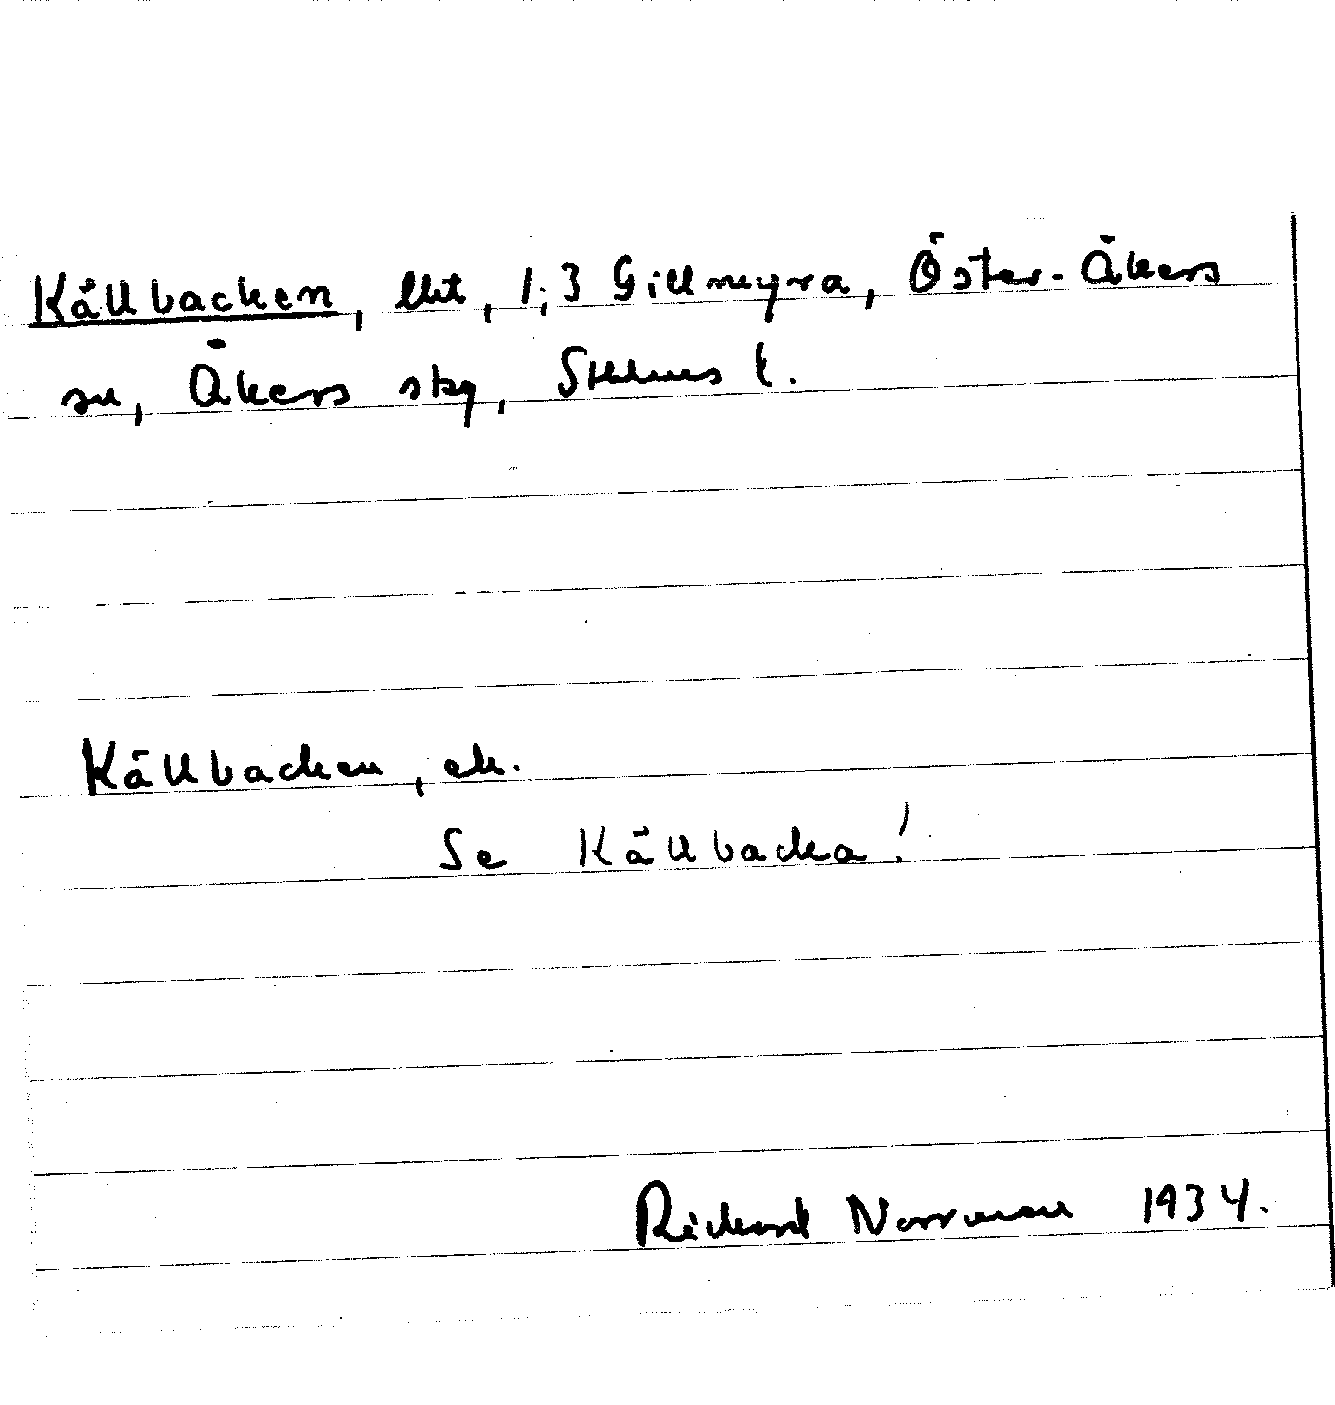 Källbacken, lht, 1:3 Gillmyra, Öster-Åkers
sn, Åkers skg, Sthlms l.
Källbacken, ek.
Se Källbacka!
Rickard Norrman 1934.